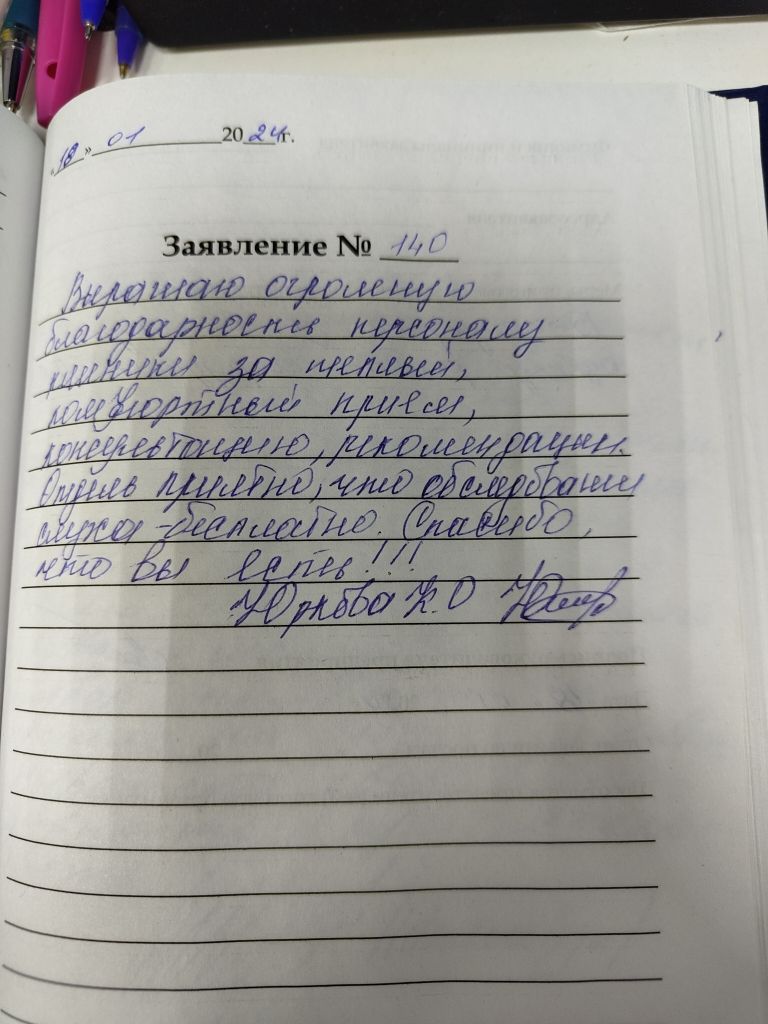 «18» 01 2024г.
Заявление № 140
Выражаю огромную
благодарность персоналу
клиники за теплый,
комфортный прием,
консультацию, рекомендации.
Очень приятно, что обследование
слуха - бесплатно. Спасибо,
что вы есть!!!
Юркова К.О